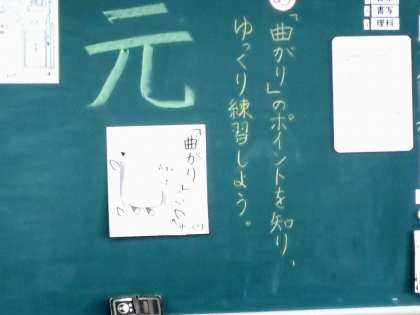 書写
理科
「曲がり」のポイントを知り、
ゆっくり練習しよう。
元
「曲がり」
ゆっくり